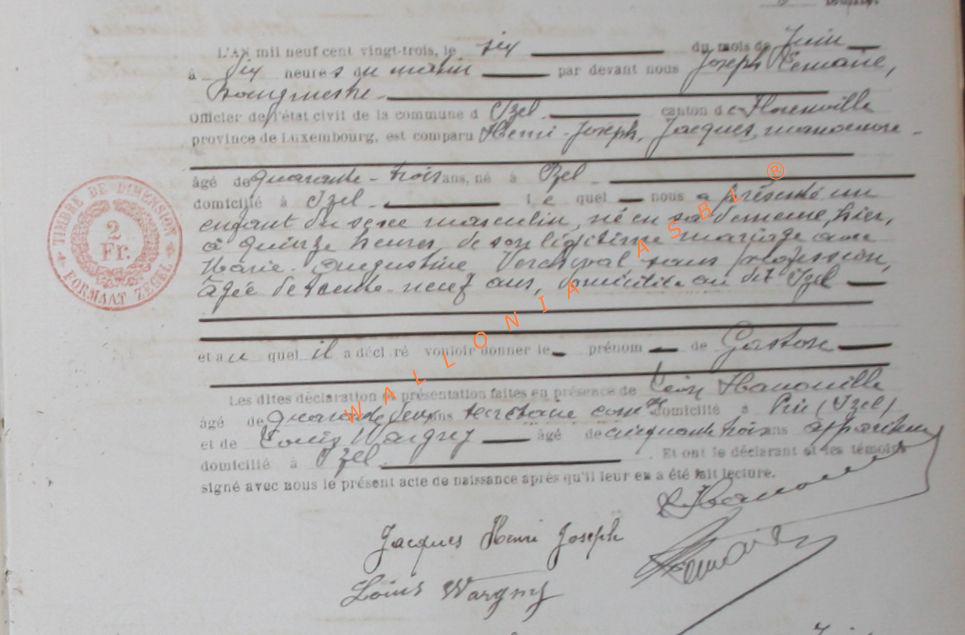 L'AN mil neuf cent vingt-trois, le six du mois de Juin
à dix heures du matin par devant nous Joseph Lemaire,
bourgmestre
Officier de l'état civil de la commune d Izel canton de Florenville
province de Luxembourg, est comparu Henri-Joseph, Jacques, manoeuvre
âgé de quarante-trois ans, né à Izel
domicilié à Izel le quel nous a présenté un
enfant du sexe masculin, né en sa demeure, hier,
à quinze heures, de son légitime mariage avec
Marie-Augustine sans profession,
âgée de trente-neuf ans, domiciliée au dit Izel
et au quel il a déclaré vouloir donner le prénom de Gaston
Les dites déclaration et présentation faites en présence de Léon Hanouille
âgé de quarante deux ans secrétaire comal domicilié à Pin (Izel)
et de Louis Wargny âgé de cinquante trois ans appariteur
domicilié à Izel. Et ont le déclarant et les témoins
signé avec nous le présent acte de naissance après qu'il leur en a été fait lecture.
Jacques Henri Joseph
Louis Wargny
TIMBRE DE DIMENSION
2
Fr.
FORMAAT ZEGEL
WALLONIA ASBL ®